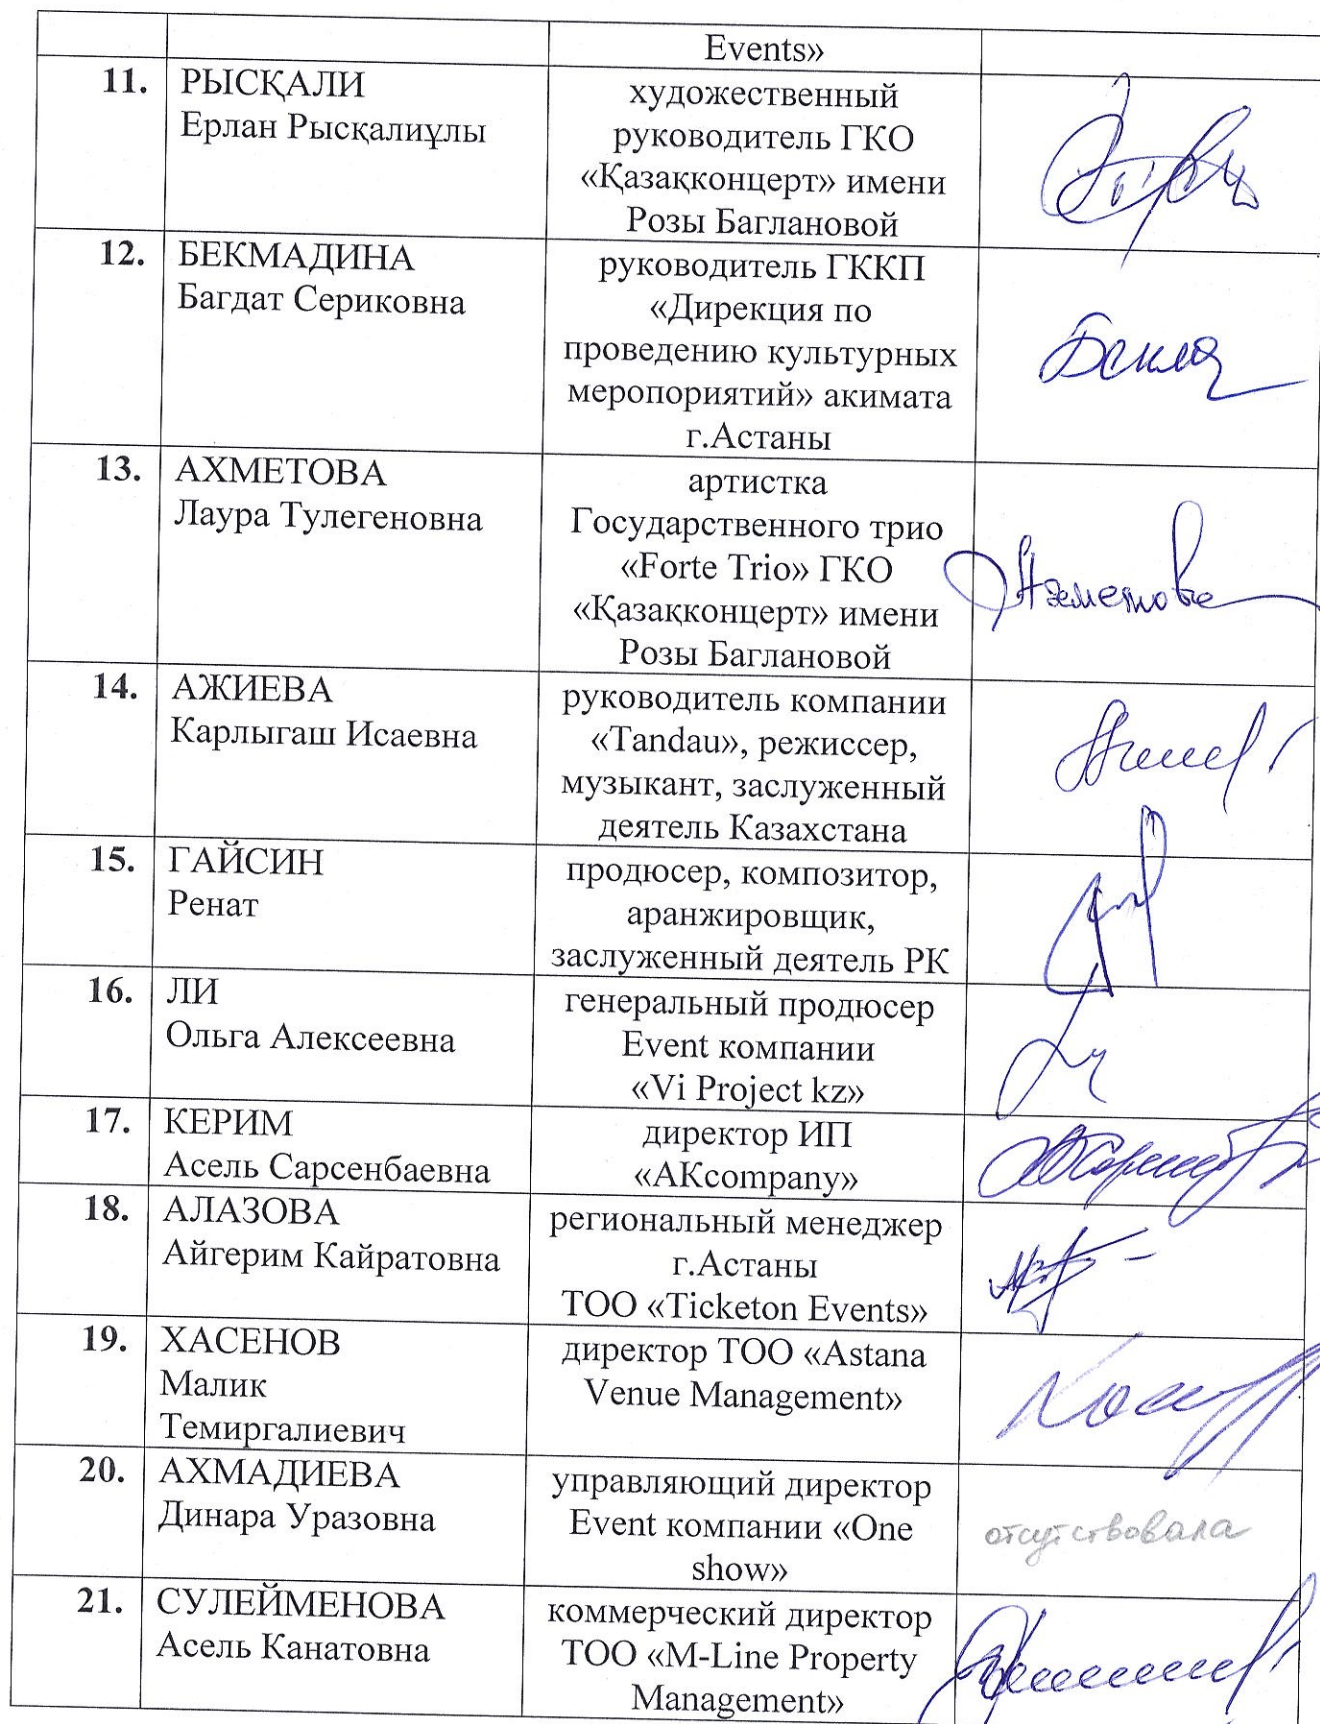 Events»
11.
РЫСҚАЛИ
Ерлан Рысқалиұлы
художественный
руководитель ГКО
«Қазақконцерт» имени
Розы Баглановой
12.
БЕКМАДИНА
Багдат Сериковна
руководитель ГККП
«Дирекция по
проведению культурных
меропориятий» акимата
г.Астаны
13.
АХМЕТОВА
Лаура Тулегеновна
артистка
Государственного трио
«Forte Trio» ГКО
«Қазақконцерт» имени
Розы Баглановой
Ахметова
14.
АЖИЕВА
Карлыгаш Исаевна
руководитель компании
«Tandau», режиссер,
музыкант, заслуженный
деятель Казахстана
15.
ГАЙСИН
Ренат
продюсер, композитор,
аранжировщик,
заслуженный деятель РК
16.
ЛИ
Ольга Алексеевна
генеральный продюсер
Event компании
«Vi Project kz»
17.
КЕРИМ
Асель Сарсенбаевна
директор ИП
«AKcompany»
18.
АЛАЗОВА
Айгерим Кайратовна
региональный менеджер
г.Астаны
ТОО «Ticketon Events»
19.
ХАСЕНОВ
Малик
Темиргалиевич
директор ТОО «Astana
Venue Management»
20.
АХМАДИЕВА
Динара Уразовна
управляющий директор
Event компании «One
show»
отсутствовала
21.
СУЛЕЙМЕНОВА
Асель Канатовна
коммерческий директор
ТОО «M-Line Property
Management»